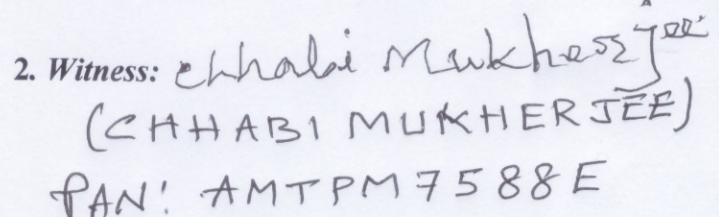 2. Witness: Chhabi Mukherjee
(CHHABI MUKHERJEE)
PAN: AMTPM7588E